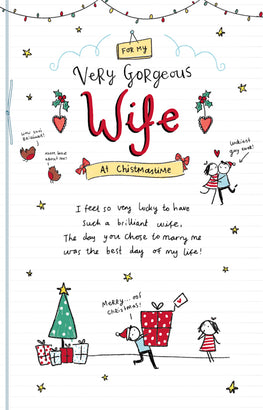 FOR MY
VERY GORGEOUS
Wife
At Chistmastime
luckiest
guy ever!
I feel so very lucky to have
such a brilliant wife.
The day you chose to marry me
was the best day of my life!
Merry... oof
Christmas!